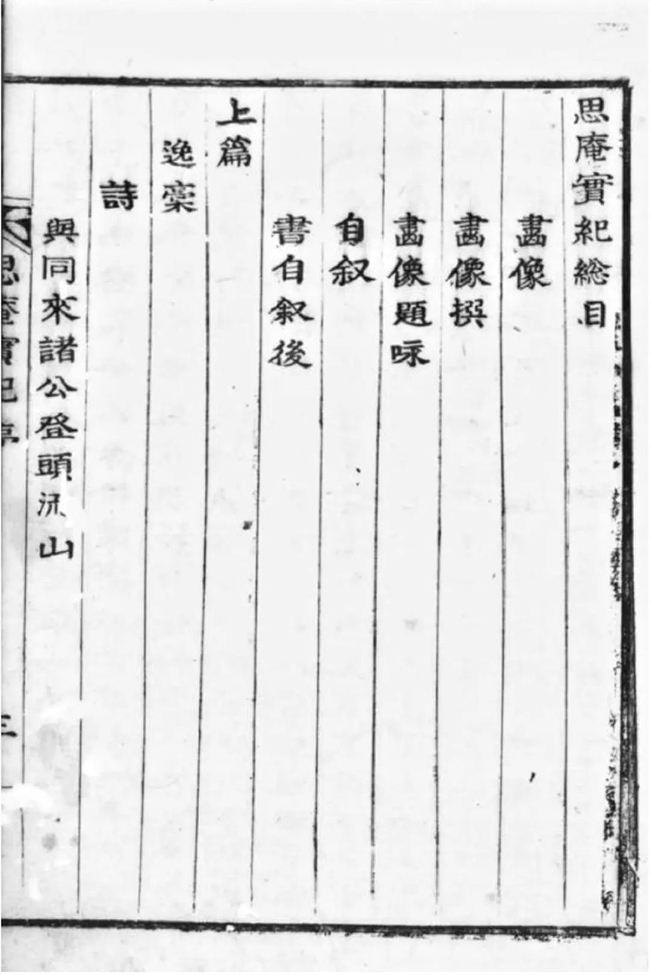 思庵實紀総目
畵像
畵像撰
畵像題咏
自叙
書自叙後
上篇
逸稾
詩
與同來諸公登頭流山
思庵實紀